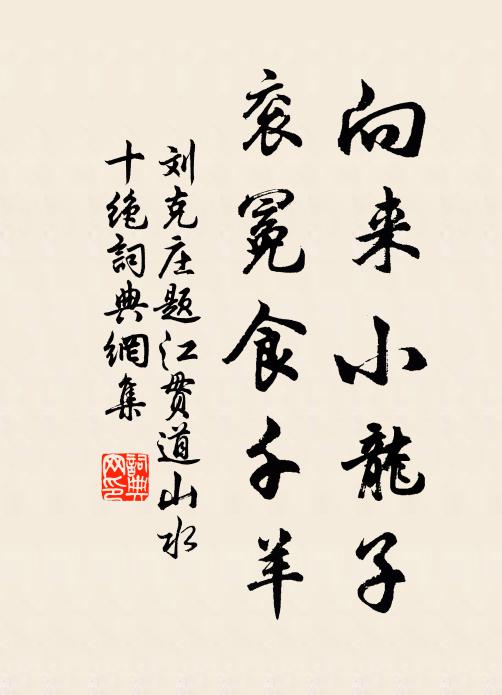 向来小龍子
衮冕食千羊
刘克庄题江贯道山水
十绝詞典網集
詞典網印